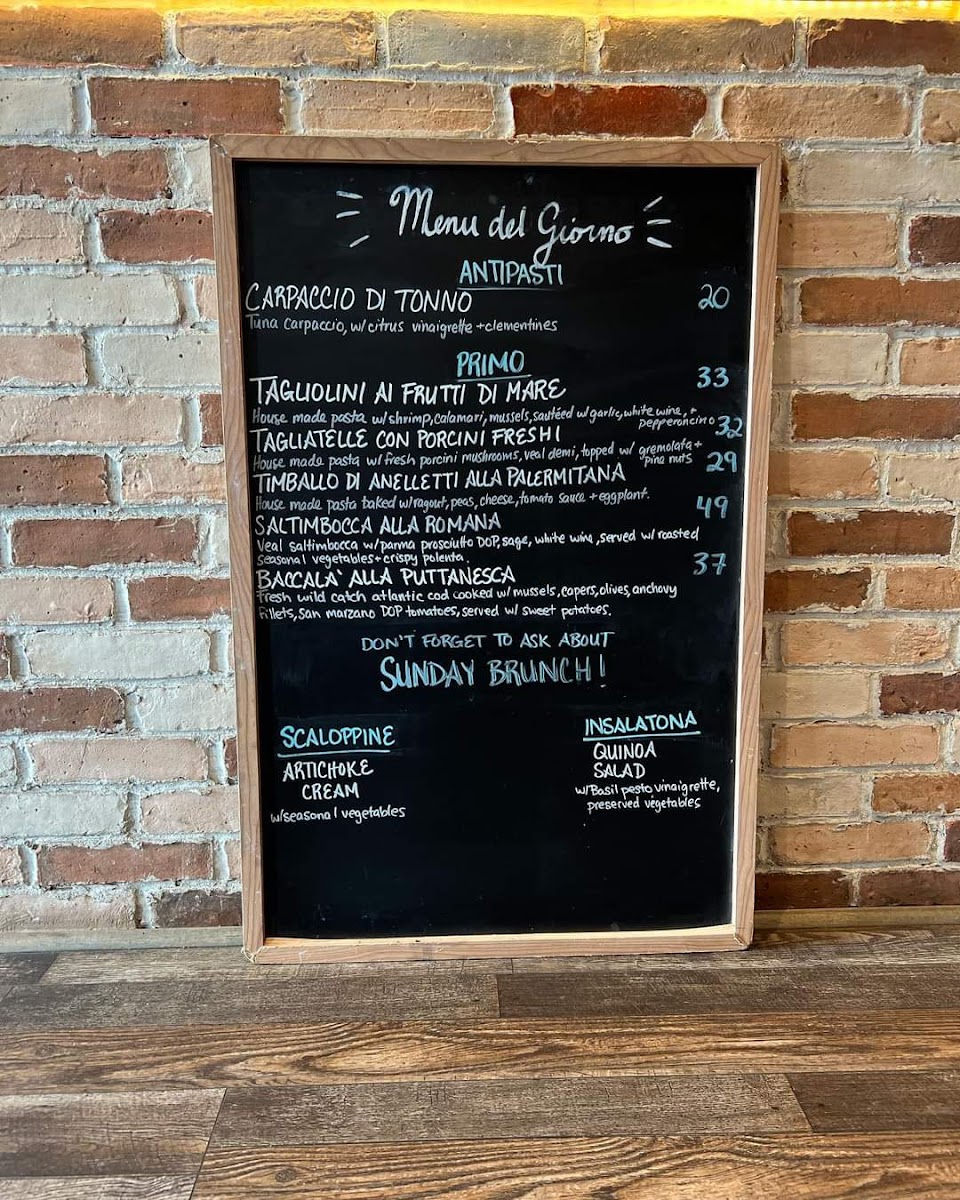 Menu del Giorno
ANTIPASTI
CARPACCIO DI TONNO 20
Tuna carpaccio, w/ citrus vinaigrette + clementines
PRIMO
TAGLIOLINI AI FRUTTI DI MARE 33
House made pasta w/ shrimp, calamari, mussels, sautéed w/ garlic, white wine, +
pepperoncino
TAGLIATELLE CON PORCINI FRESHI 32
House made pasta w/ fresh porcini mushrooms, veal demi, topped w/ gremolata +
pine nuts
TIMBALLO DI ANELLETTI ALLA PALERMITANA 29
House made pasta baked w/ ragout, peas, cheese, tomato sauce + eggplant.
SALTIMBOCCA ALLA ROMANA 49
Veal saltimbocca w/ parma prosciutto DOP, sage, white wine, served w/ roasted
seasonal vegetables + crispy polenta.
BACCALA' ALLA PUTTANESCA 37
Fresh wild catch atlantic cod cooked w/ mussels, capers, olives, anchovy
fillets, san marzano DOP tomatoes, served w/ sweet potatoes.
DON'T FORGET TO ASK ABOUT
SUNDAY BRUNCH!
SCALOPPINE
ARTICHOKE
CREAM
w/ seasonal vegetables
INSALATONA
QUINOA
SALAD
w/ Basil pesto vinaigrette,
preserved vegetables